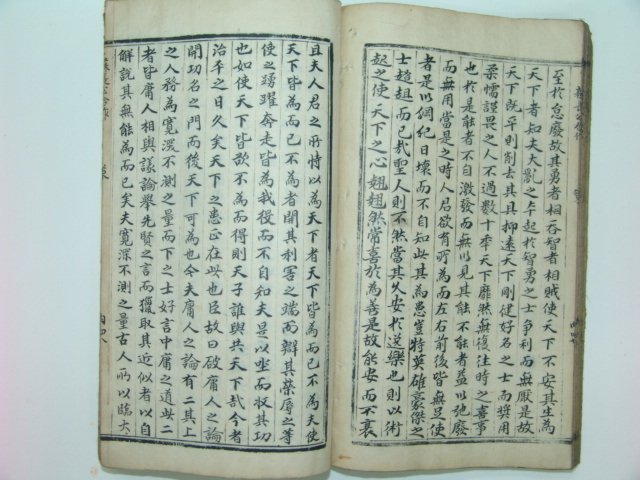 至於怠廢故其勇者相吞智者相賊使天下不安其生為
天下者知夫大亂之本起於智勇之士爭利而無厭是故
天下既平則削去其具抑遠天下剛健好名之士而獎用
柔懦謹畏之人不過數十年天下靡然無復往時之喜事
也於是能者不自激發而無以見其能不能者益以弛廢
而無用當是之時人君欲有所為而左右前後皆無足使
者是以綱紀日壞而不自知此其為患豈特英雄豪傑之
士趑趄而已哉聖人則不然當其久安於逸樂也則以術
起之使天下之心翹翹然常喜於為善是故能安而不衰
且夫人君之所恃以為天下者天下皆為而已不為夫使
天下皆為而已不為者開其利害之端而辯其榮辱之等
使之踴躍奔走皆為我役而不自知夫是以坐而收其功
也如使天下皆欲不為而得則天子誰與共天下哉今者
治平之日久矣天下之患正在此也臣故曰破庸人之論
開功名之門而後天下可為也今夫庸人之論有二其上
之人務為寬深不測之量而下之士好言中庸之道此二
者皆庸人相與議論舉先賢之言而獵取其近似者以自
解說其無能為而已矣夫寬深不測之量古人所以臨大